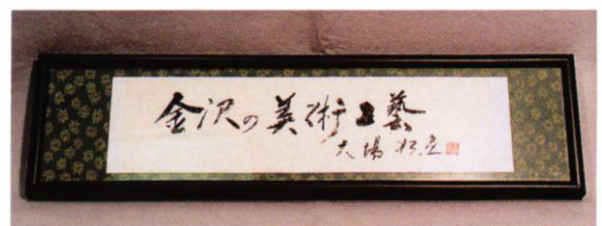 金沢の美術工藝
大場松魚